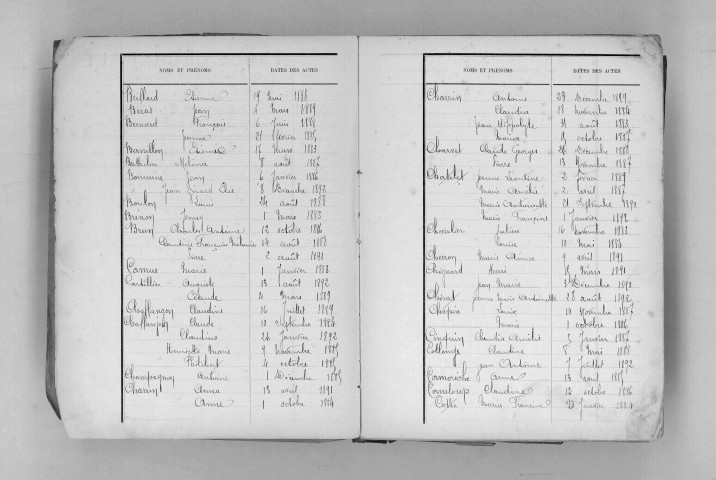 NOMS ET PRÉNOMS DATES DES ACTES
Brillard Etienne 19 Mai 1888
Beras Jean 4 Mars 1889
Bernard François 6 Juin 1886
Jeanne 21 février 1885
Bernillon Etienne 17 Mars 1883
Berthelier Melina 8 août 1887
Bonneur Jean 6 Janvier 1886
Jean Claude 8 Décembre 1892
Boulon Louis 24 août 1888
Brenon James 1 Mars 1883
Brun Claudius Antoine 12 octobre 1886
Claudine Françoise Melanie 14 août 1888
Pierre 2 août 1890
Camus Marie 1 Janvier 1883
Castillon Auguste 13 août 1892
Claude 21 Mars 1889
Chaffangeon Claudine 16 Juillet 1889
Chaffanjon Claude 10 Septembre 1884
Claudius 26 Janvier 1892
Henriette Marie 9 Novembre 1885
4 octobre 1885
Champagnon Antoine 1 Décembre 1885
Charrin Anna 13 avril 1891
Anne 1 octobre 1884
NOMS ET PRÉNOMS DATES DES ACTES
Charrin Antoine 23 Décembre 1889
Claudius 18 Novembre 1884
Jean Hippolyte 11 août 1883
Maria 14 octobre 1887
Charvet Claude Georges 26 Décembre 1888
Pierre 13 Novembre 1887
Chatelet Jeanne Léontine 2 février 1889
Marie Amélie 2 avril 1887
Marie Antoinette 21 Septembre 1890
Marie Françoise 1 Janvier 1892
Chevalier Julien 16 Novembre 1883
Louise 10 Mai 1884
Marie Aimée 9 avril 1891
Henri 18 Mars 1891
Jean Marie Décembre 1892
Jeanne Marie Antoinette 28 août 1892
Chopin Louise 10 Novembre 1887
Marie 1 octobre 1886
Cinquin Claudia Amélie 5 Janvier 1887
Collonge Claudine 8 Mai 1888
Jean Antoine 7 Juillet 1892
Anne 13 août 1885
Corneloup Claudine 12 octobre 1886
Marie Francine 23 Janvier 1884